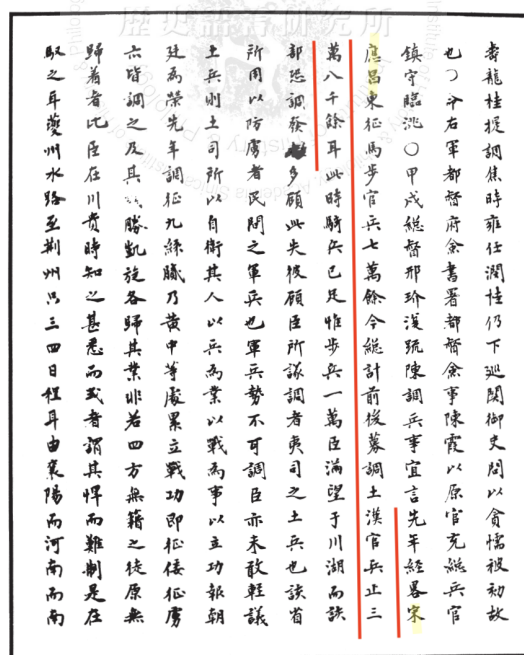 壽龍桂提調焦時雍任潤性仍下廵関御史問以貪懦被劾故
也○命右軍都督府僉書署都督僉事陳霞以原官充総兵官
鎮守臨洮○甲戌総督邢玠復疏陳調兵事宜言先年経畧宋
應昌東征馬步官兵七萬餘今総計前後募調土漢官兵止三
萬八千餘耳此時騎兵已足惟步兵一萬臣滿望于川湖而該
部恐調發多顧此失彼顧臣所議調者夷司之土兵也該省
所用以防虜者民間之軍兵也軍兵勢不可調臣亦未敢輕議
土兵則土司所以自衛其人以兵為業以戰為事以立功報朝
廷為榮先年調征九絲膩乃黃中等處累立戰功即征倭征虜
亦皆調之及其勝凱旋各歸其業非若四方無籍之徒原無
歸着者比臣在川貴時知之甚悉而或者謂其悍而難制是在
馭之耳夔州水路至荆州只三四日程耳由襄陽而河南而南
歷史語言研究所